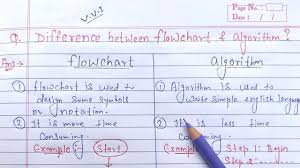 V.V.I
Page No.
Date: / /
Q. Difference between flowchart & algorithm?
Ans→ flowchart Algorithm
① flowchart is used to
design some symbols
or notation.
② It is more time
consuming.
Example: Start
① Algorithm is used to
write simple english language
② It is less time
consuming.
Example: Step 1: Begin
Step 2: